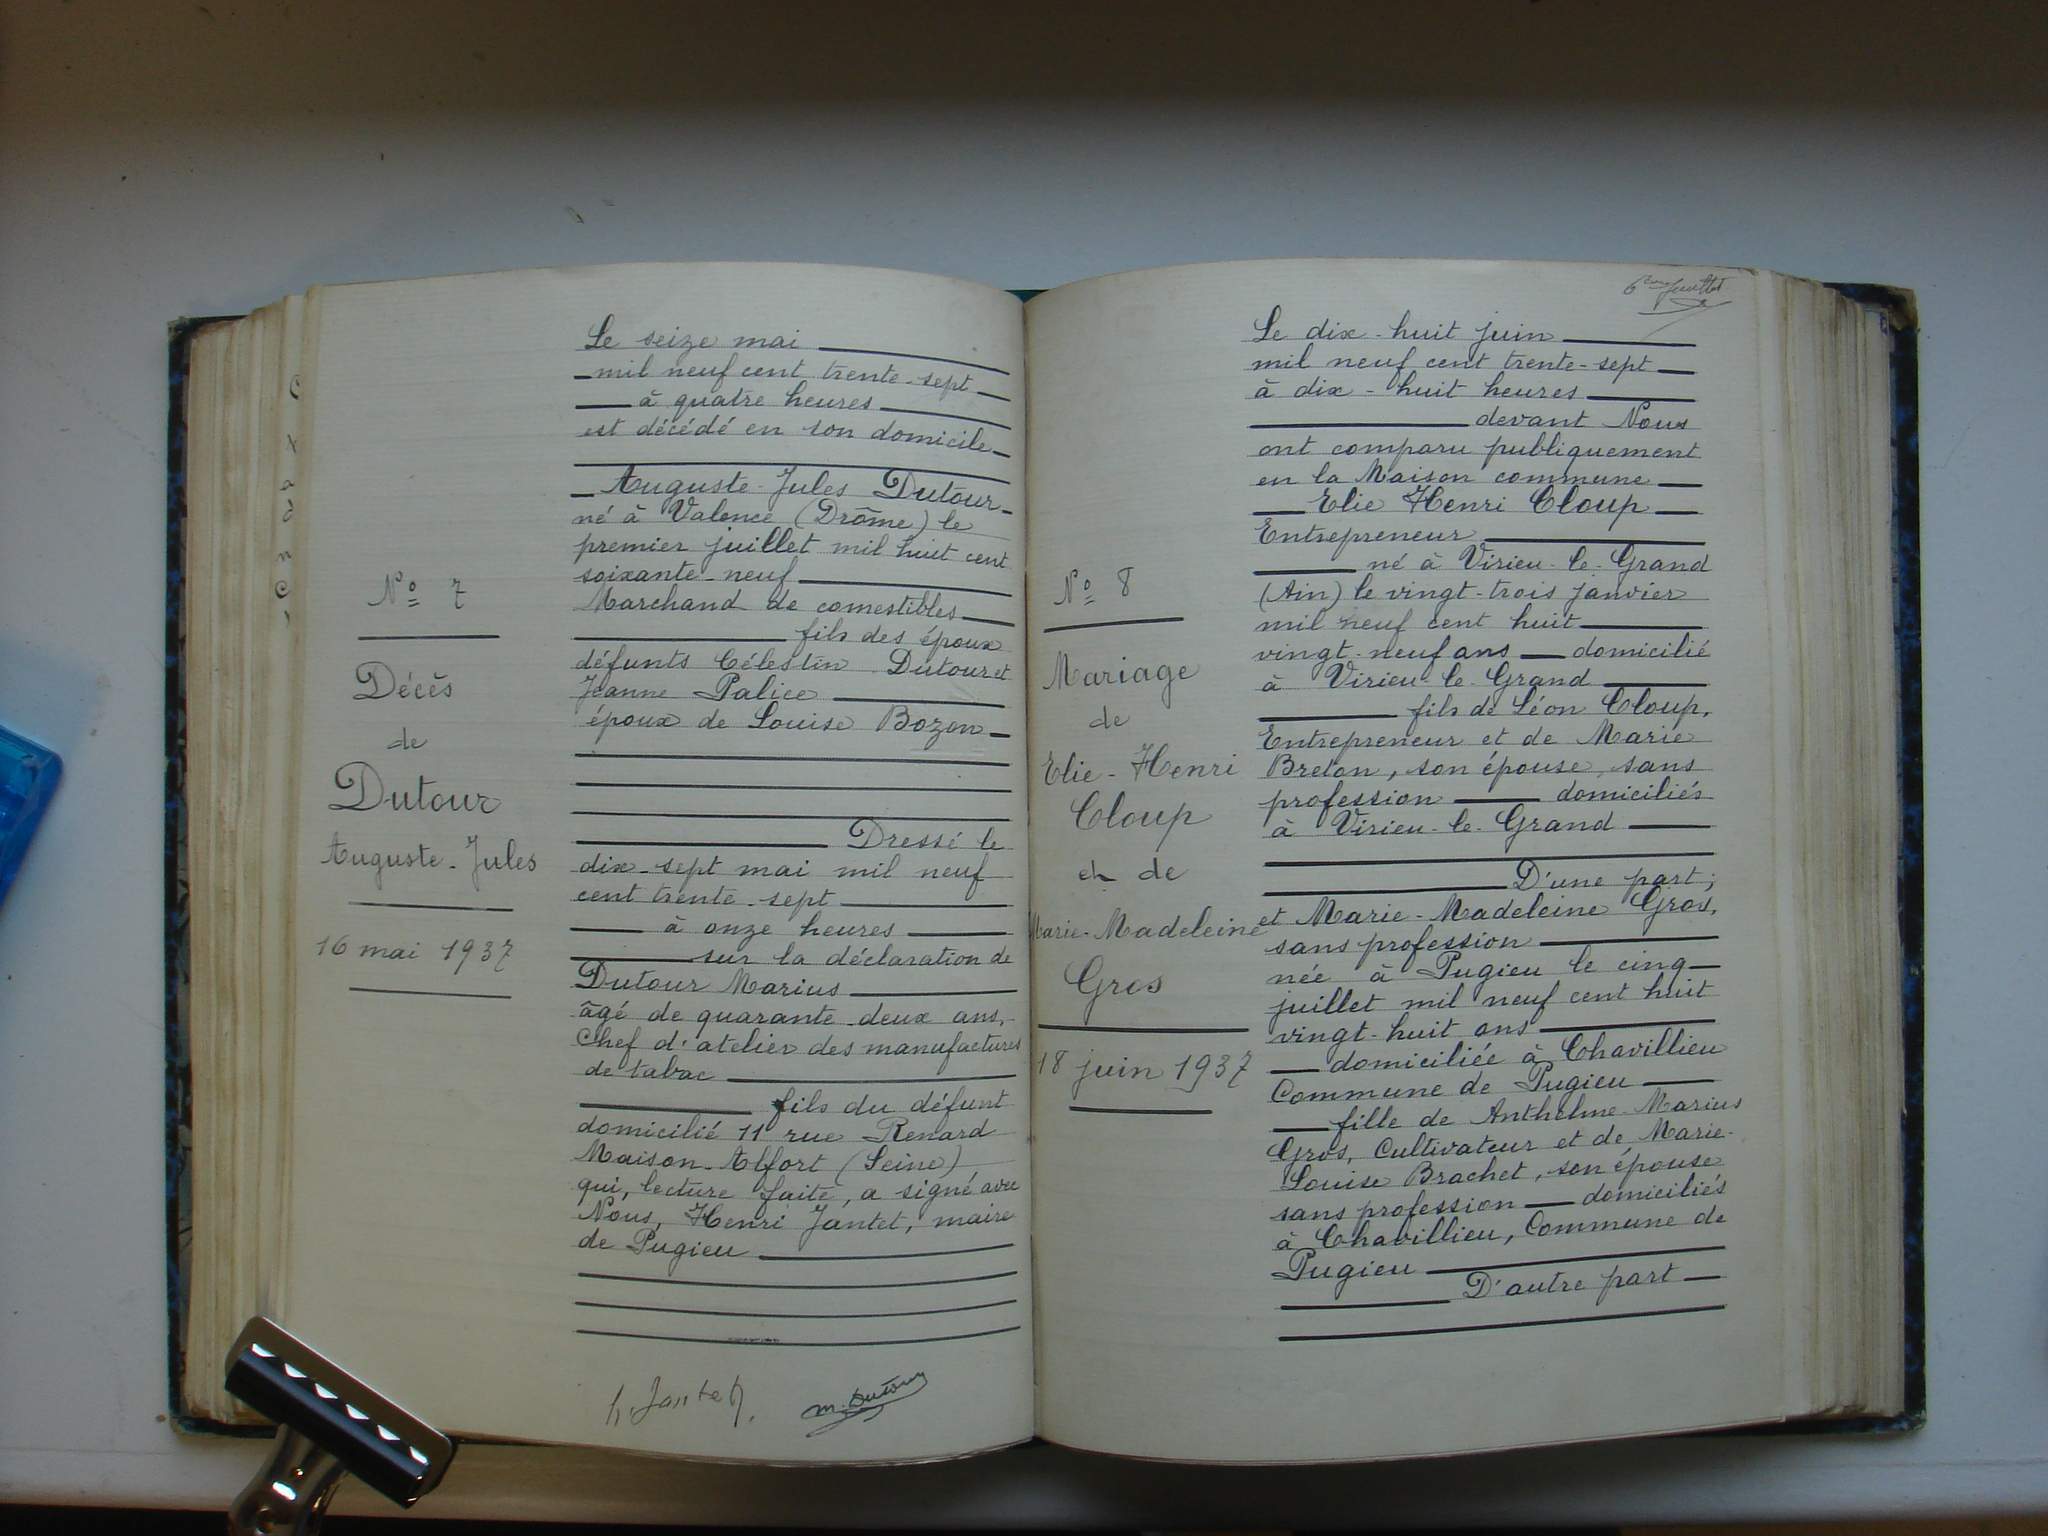 N° 7
Décès
de
Dutour
Auguste-Jules
16 mai 1937
Le seize mai
mil neuf cent trente-sept
à quatre heures
est décédé en son domicile
Auguste-Jules Dutour
né à Valence (Drôme) le
premier juillet mil huit cent
soixante-neuf
Marchand de comestibles
fils des époux
défunts Célestin Dutour et
Jeanne Palice
époux de Louise Bozon
Dressé le
dix-sept mai mil neuf
cent trente-sept
à onze heures
sur la déclaration de
Dutour Marius
âgé de quarante-deux ans,
Chef d'atelier des manufactures
de tabac
fils du défunt
domicilié 11 rue Renard
Maison-Alfort (Seine)
qui, lecture faite, a signé avec
Nous, Henri Jantet, maire
de Pugieu
h. Jantet
M. Dutour
N° 8
Mariage
de
Elie-Henri
Cloup
et de
Marie-Madeleine
Gros
18 juin 1937
Le dix-huit juin
mil neuf cent trente-sept
à dix-huit heures
devant Nous
ont comparu publiquement
en la Maison commune
Elie Henri Cloup
Entrepreneur
né à Virieu-le-Grand
(Ain) le vingt-trois janvier
mil neuf cent huit
vingt-neuf ans domicilié
à Virieu-le-Grand
fils de Léon Cloup,
Entrepreneur et de Marie
Breton, son épouse, sans
profession domiciliés
à Virieu-le-Grand
D'une part;
et Marie-Madeleine Gros,
sans profession
née à Pugieu le cinq
juillet mil neuf cent huit
vingt-huit ans
domiciliée à Chavillieu
Commune de Pugieu
fille de Anthelme-Marius
Gros, Cultivateur et de Marie-
Louise Brachet, son épouse
sans profession domiciliés
à Chavillieu, Commune de
Pugieu
D'autre part